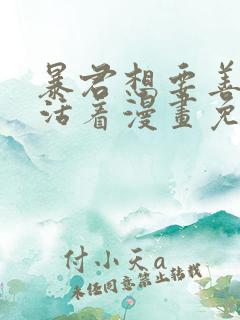 暴君想要善
活着漫畫免
付小天a
未经同意禁止转载